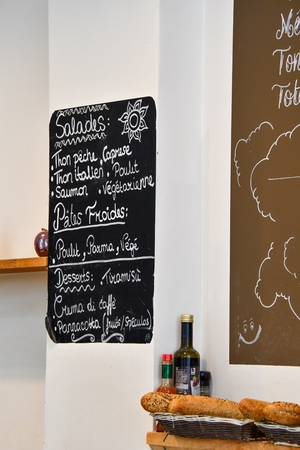 Salades:
• Thon pêche, Caprese
• Thon italien • Poulit
• Saumon • Végétarienne
Pâtes Froides:
• Poulit, Parma, Végé
Desserts: Tiramisù
Crema di caffè
• Pannacotta (fruits/spéculos)
Ton